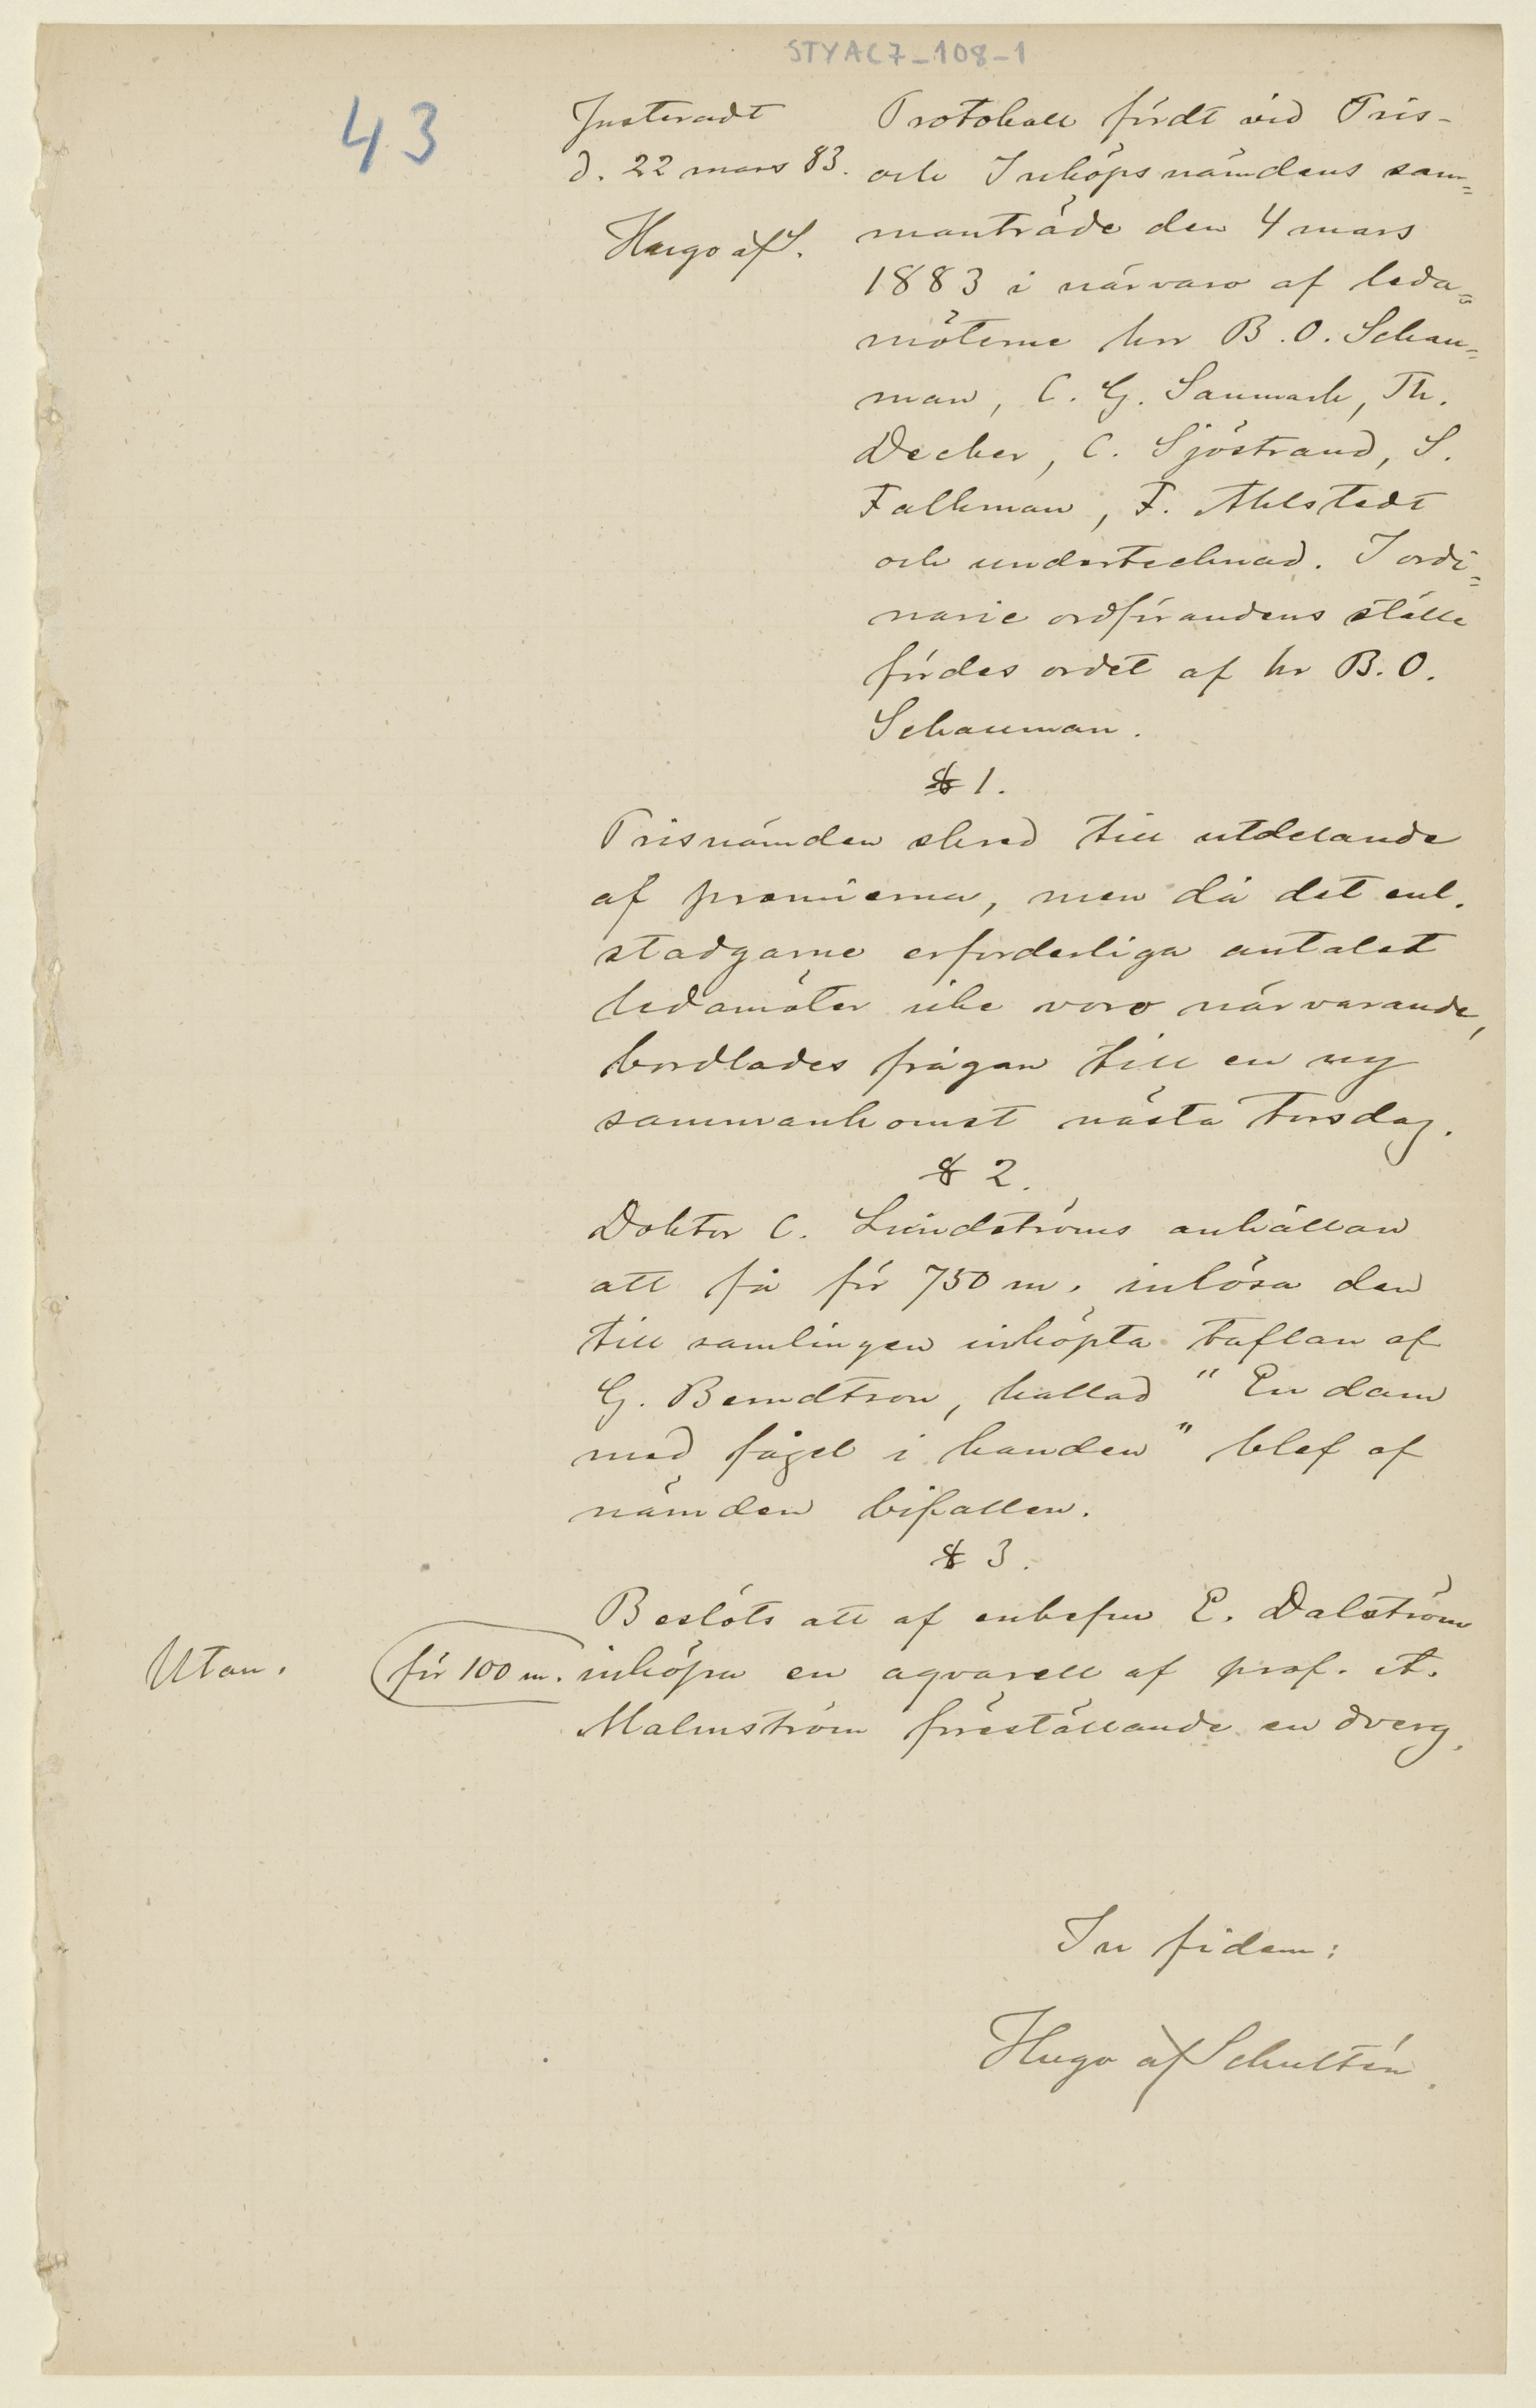 STYAC7_108-1
43
Justeradt
d. 22 mars 83.
Hugo af S.
Protokoll fördt vid Pris-
och Inköpsnämdens sam=
manträde den 4 mars
1883 i närvaro af leda=
möterne hrr B. O. Schau=
man, C. G. Sanmark, Th.
Decker, C. Sjöstrand, S.
Falkman, F. Ahlstedt
och undertecknad. I ordi=
narie ordförandens ställe
fördes ordet af hr B. O.
Schauman.
§ 1.
Prisnämden skred till utdelande
af premierna, men då det enl.
stadgarne erforderliga antalet
ledamöter icke voro närvarande,
bordlades frågan till en ny
sammankomst nästa torsdag.
§ 2.
Doktor C. Lündströms anhållan
att få för 750 m. inlösa den
till samlingen inköpta taflan af
G. Berndtson, kallad "En dam
med fågel i handen" blef af
nämden bifallen.
§ 3.
Beslöts att af enkefru E. Dalström
Utan. för 100 m. inköpa en aqvarell af prof. A.
Malmström föreställande en dverg.
In fidem:
Hugo af Schultén.